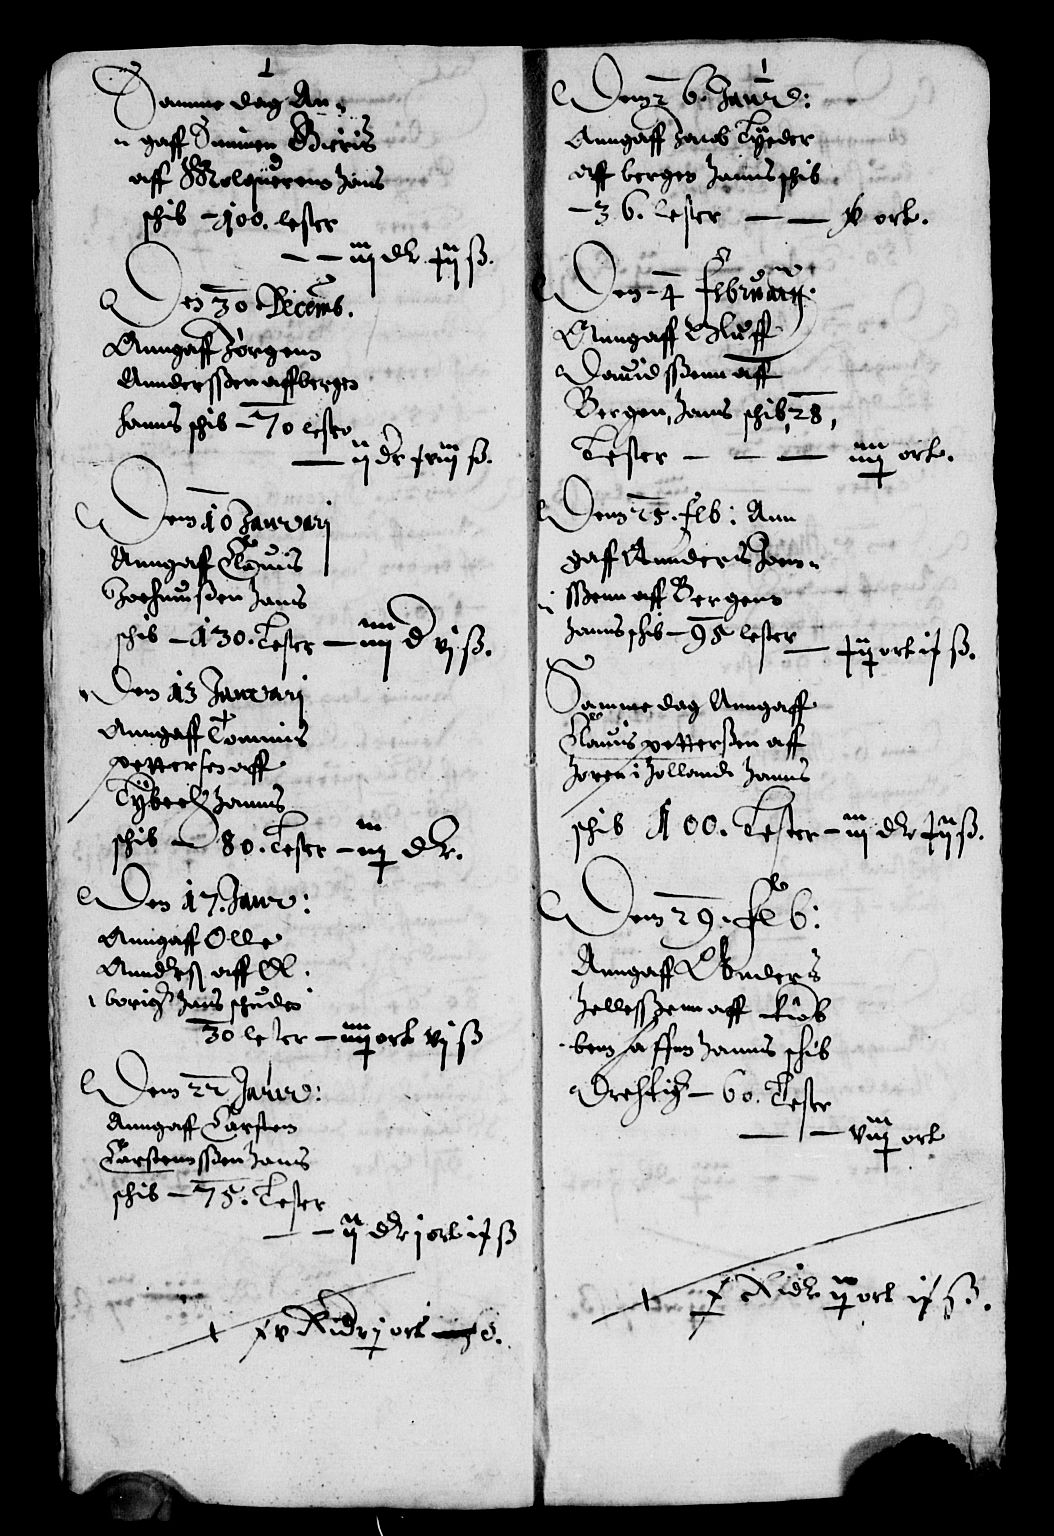 Samme dag An-
gaff Simen Gieris
aff Molquerens hans
schib – 100. lester
– – iij dr. ß.
Den 30 Decemb.
Anngaff Jörgenn
Annderssenn aff bergen
hanns schib – 70 lester
— ij dr xviij ß.
Denn 10 Januarj
Anngaff Clauis
hans
schib – 130. Lester — iiij d vj ß.
Den 13 Januarj
Anngaff Tommis
pettersen aff
hanns
schib – 80. Lester – iij dr.
Den 17. Janr:
Anngaff Olle
Anders aff Al:
borig hans schude
30 lester – iiij ort vj ß
Denn 22 Janr:
Anngaff Carsten
Carstennssen hans
schib – 75. Lester
— – ij dr j ort ß
xv Ridr j ort

Denn 26. Janr:
Anngaff Jacob
aff bergen hanns schib
– 36. lester — — ort.
Den 4 februarij.
Anngaff Oluff
Dauidssenn aff
Bergen, hans schib, 28,
Lester – – — iiij ort.
Denn 25. feb: Ann
gaff Annders Joen-
ssenn aff Bergenn
hanns schib – 95 lester
— ort ß.
Samme dag Anngaff
Clauis petterssen aff
Horen i Hollandt hanns
schib 100. Lester – iij dr ß.
Denn 29. feb:
Anngaff Anders
Jellessenn aff kiöb
ben haffen hanns schib
Drechtig – 60. Lester
— – viij ort
x Ridr ij ort ß.